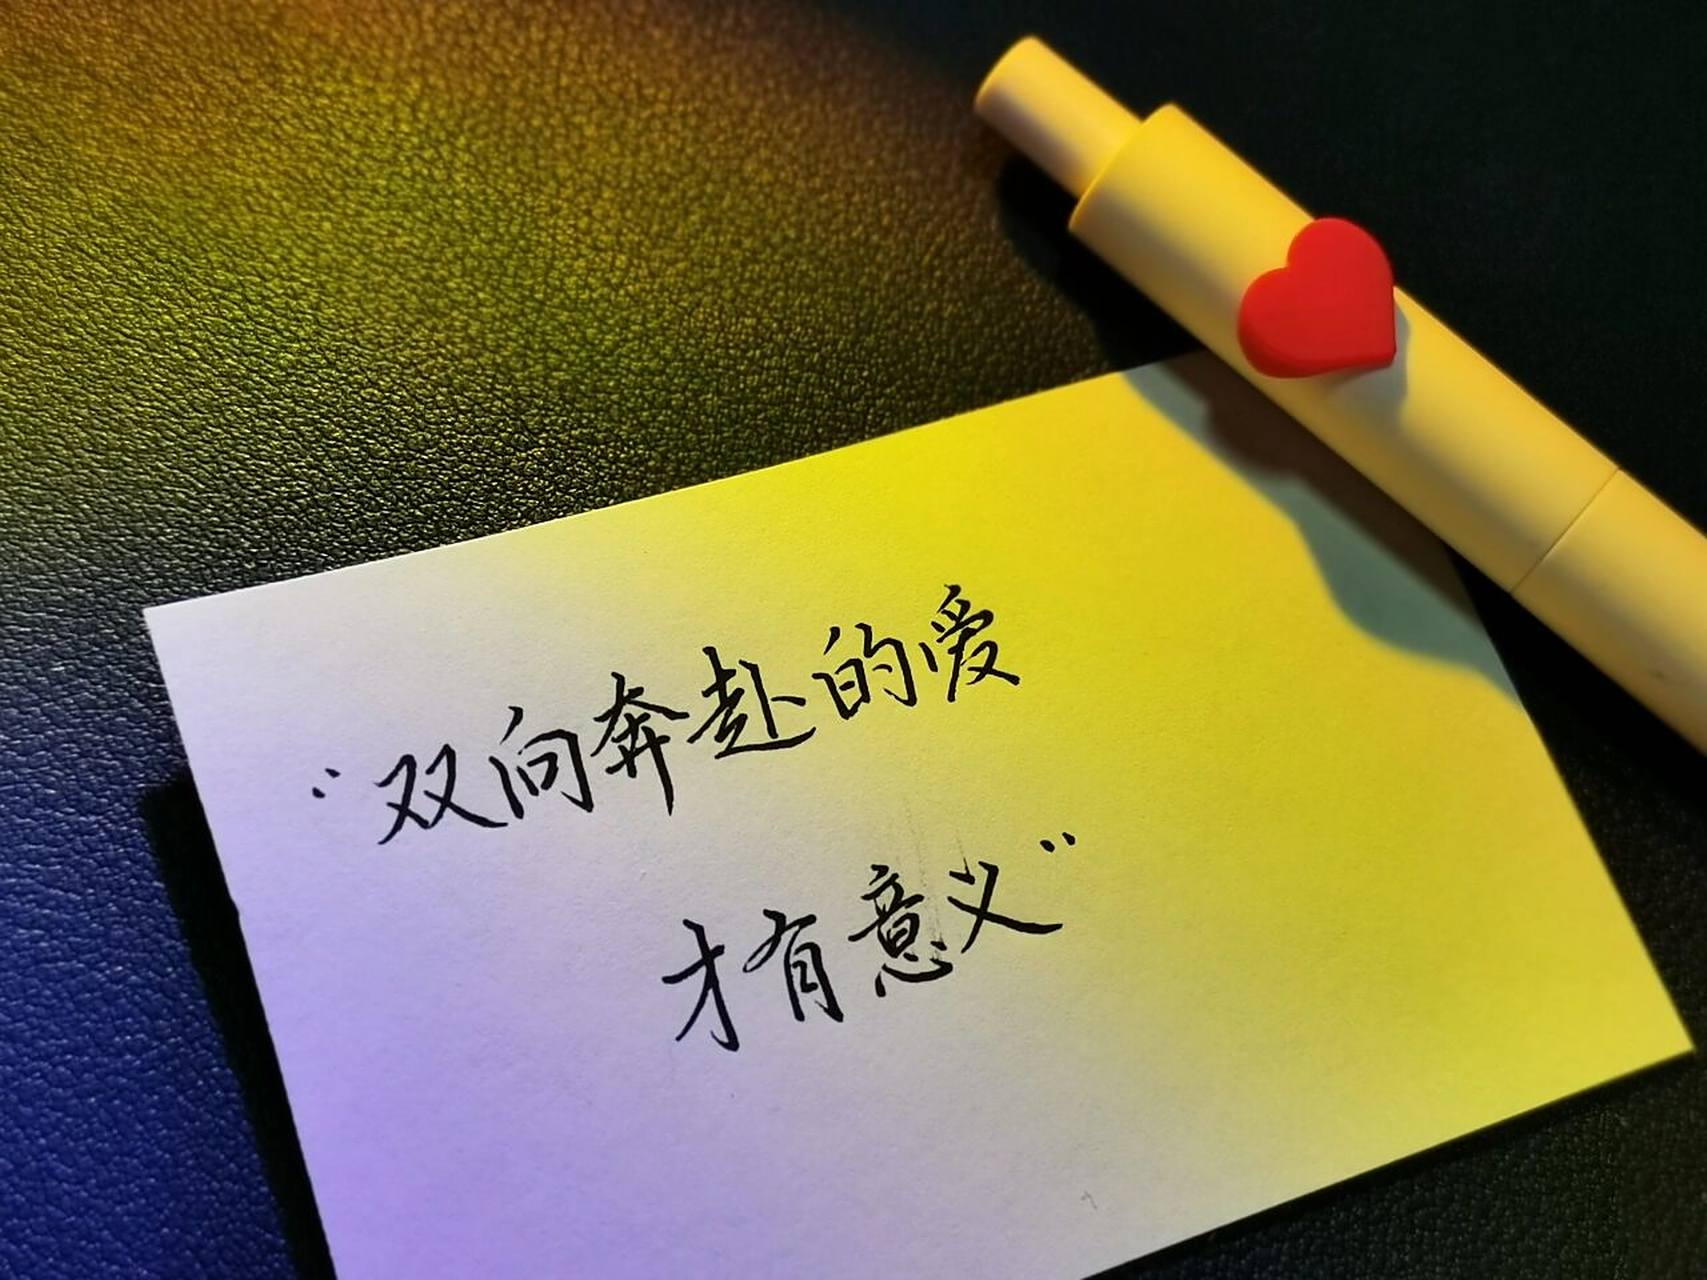 “双向奔赴的爱
才有意义”